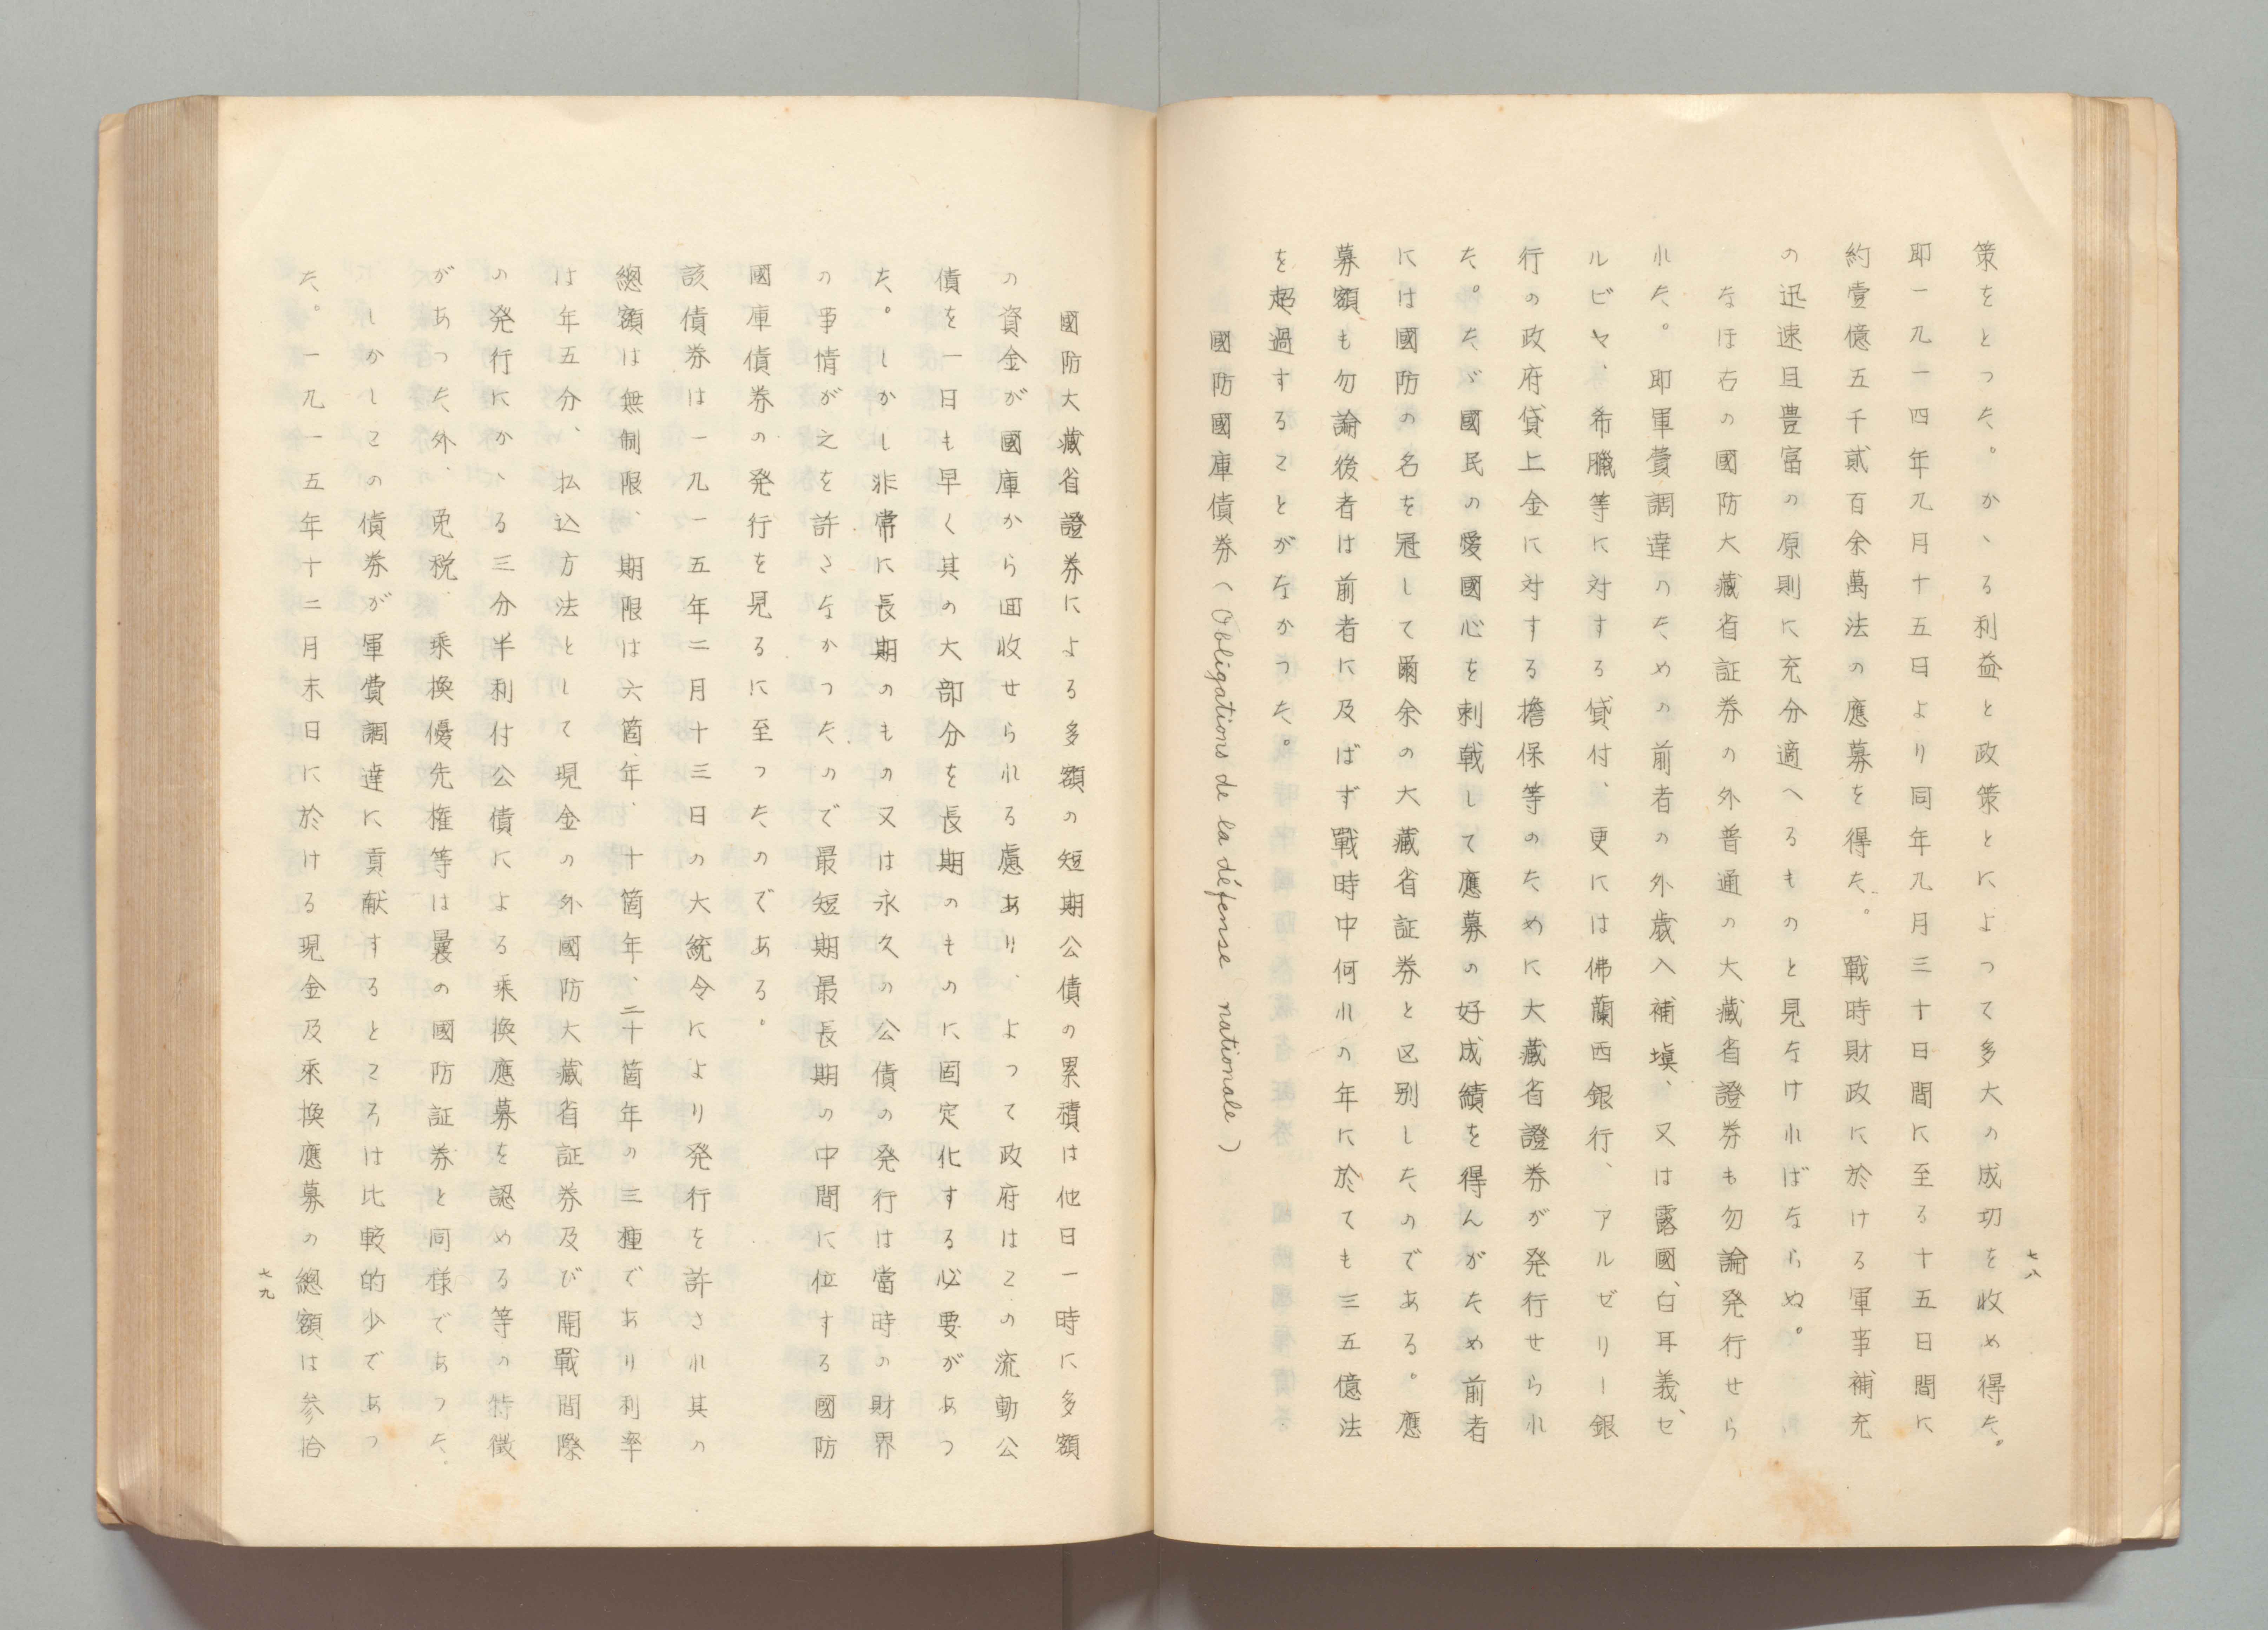 策をとつた。かゝる利益と政策とによつて多大の成切を收め得た。
即一九一四年九月十五日より同年九月三十日間に至る十五日間に
約壹億五千貳百余萬法の應募を得た。戰時財政に於ける軍事補充
の迅速且豊富の原則に充分適へるものと見なければならぬ。
なほ右の國防大藏省証券の外普通の大藏省證券も勿論発行せら
れた。即軍費調達のための前者の外歳入補塡、又は露國、白耳義、セ
ルビヤ、希臘等に対する貸付、更には佛蘭西銀行、アルゼリー銀
行の政府貸上金に対する擔保等のために大藏省證券が発行せられ
た。たゞ國民の愛國心を刺戟して應募の好成績を得んがため前者
には國防の名を冠して爾余の大藏省証券と区別したのである。應
募額も勿論後者は前者に及ばず戰時中何れの年に於ても三五億法
を超過することがなかつた。
國防國庫債券(Obligations de la défense nationale)
七八
國防大藏省證券による多額の短期公債の累積は他日一時に多額
の資金が國庫から回收せられる慮あり、よつて政府はこの流動公
債を一日も早く其の大部分を長期のものに固定化する必要があつ
た。しかし非常に長期のもの又は永久の公債の発行は當時の財界
の事情が之を許さなかつたので最短期最長期の中間に位する國防
國庫債券の発行を見るに至つたのである。
該債券は一九一五年二月十三日の大統令により発行を許され其の
總額は無制限、期限は六箇年、十箇年、二十箇年の三種であり利率
は年五分、払込方法として現金の外國防大藏省証券及び開戰間際
の発行にかゝる三分半利付公債による乘換應募を認める等の特徴
があつた外、免税、乘換優先権等は曩の國防証券と同様であつた。
しかしこの債券が軍費調達に貢献するところは比較的少であつ
た。一九一五年十二月末日に於ける現金及乘換應募の總額は参拾
七九